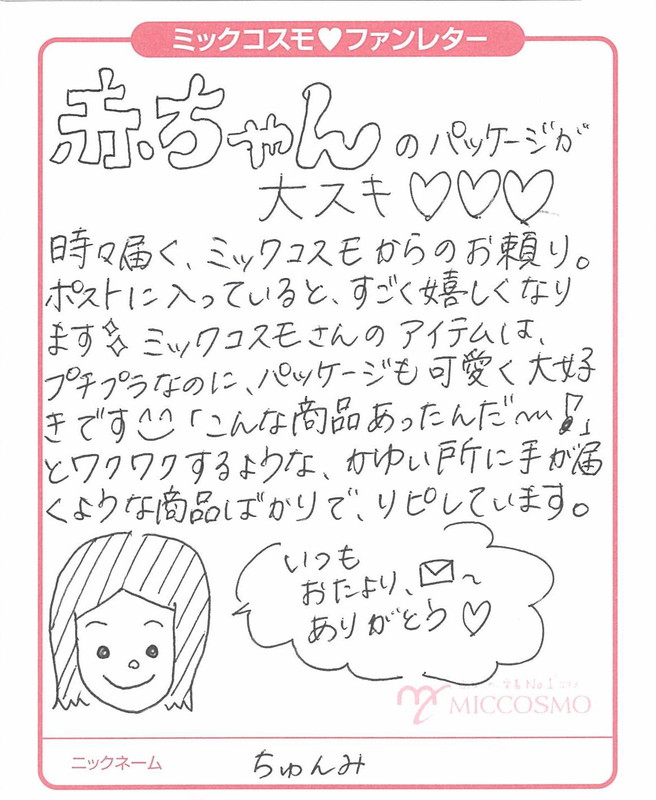 ミックコスモ♥ファンレター
赤ちゃんのパッケージが
大スキ♡♡♡
時々届く、ミックコスモからのお頼り。
ポストに入っていると、すごく嬉しくなり
ます ミックコスモさんのアイテムは、
プチプラなのに、パッケージも可愛く大好
きです「こんな商品あったんだ〜♪」
とワクワクするような、かゆい戸所に手が届
くような商品ばかりで、リピしています。
いつも
おたより、〜
ありがとう♡
MICCOSMO
ニックネーム
ちゅんみ